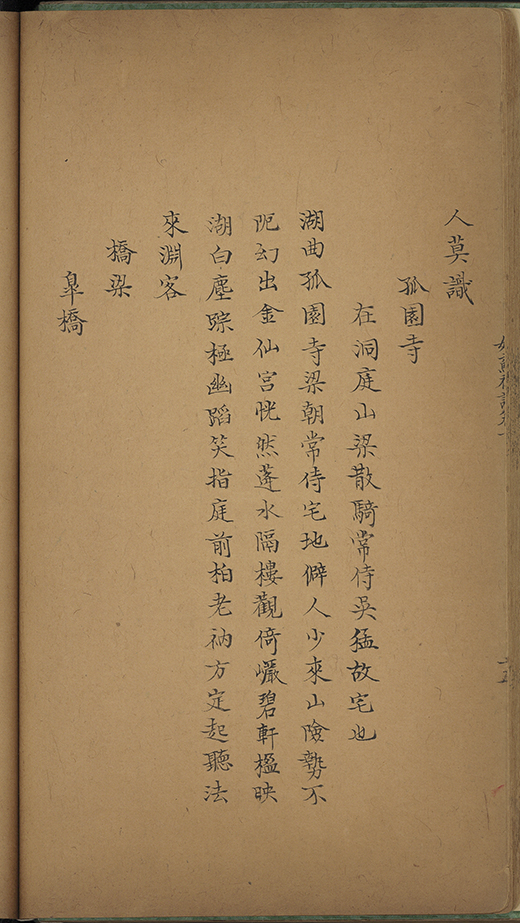 人莫識
孤園寺
在洞庭山梁散騎常侍吳猛故宅也
湖曲孤園寺梁朝常侍宅地僻人少來山險勢不
阨幻出金仙宮恍然蓬水隔樓觀倚巖碧軒楹映
湖白塵踪極幽蹈笑指庭前柏老衲方定起聽法
來淵客
橋梁
臯橋